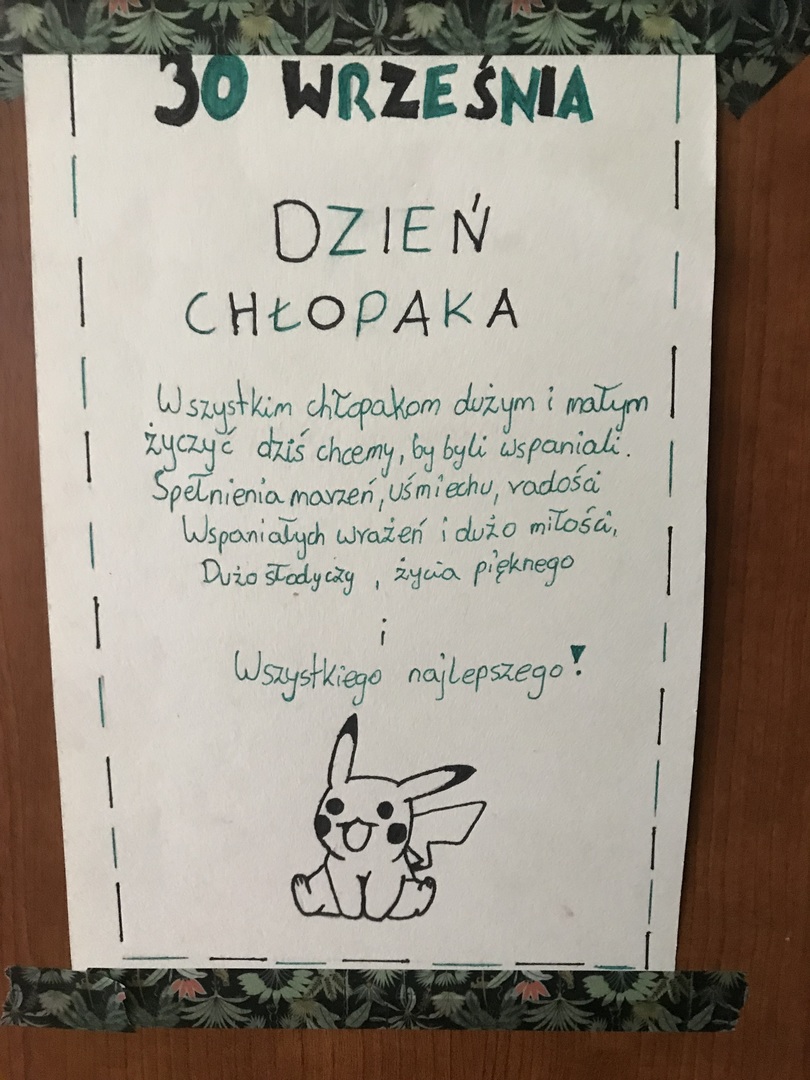 30 WRZEŚNIA
DZIEŃ
CHŁOPAKA
Wszystkim chłopakom dużym i małym
życzyć dziś chcemy, by byli wspaniali.
Spełnienia marzeń, uśmiechu, radości
Wspaniałych wrażeń i dużo miłości,
Dużo słodyczy, życia pięknego
i
Wszystkiego najlepszego!